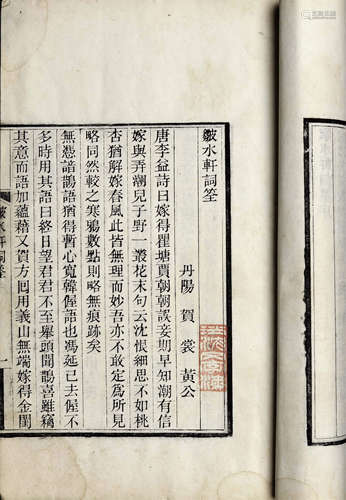 皺水軒詞筌
丹陽 賀 裳 黃公
唐李益詩曰嫁得瞿塘賈朝朝誤妾期早知潮有信
嫁與弄潮兒子野一叢花末句云沈恨細思不如桃
杏猶解嫁春風此皆無理而妙吾亦不敢定為所見
略同然較之寒鴉數點則略無痕跡矣
無憑諳鵲語猶得暫心寬韓偓語也馮延己去偓不
多時用其語曰終日望君君不至舉頭聞鵲喜雖竊
其意而語加蘊藉又賀方囘用義山無端嫁得金閨
皺水軒詞筌
一